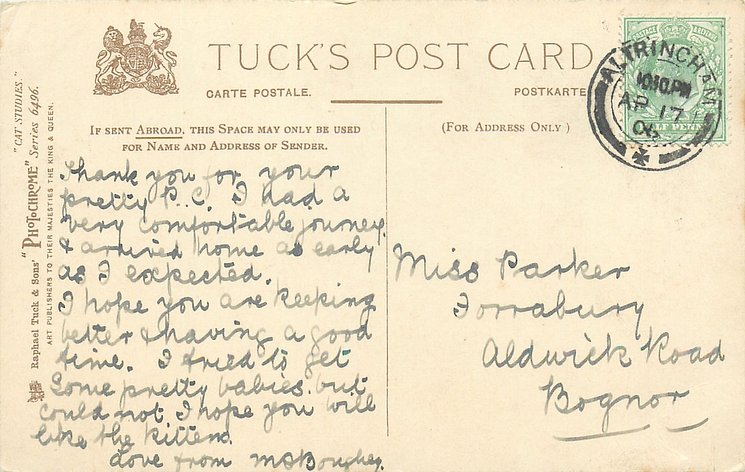 TUCK'S POST CARD
CARTE POSTALE. POSTKARTE
IF SENT ABROAD, THIS SPACE MAY ONLY BE USED
FOR NAME AND ADDRESS OF SENDER.
(FOR ADDRESS ONLY)
"CAT STUDIES."
Raphael Tuck & Sons' "PHOTOCHROME" Series 6496.
ART PUBLISHERS TO THEIR MAJESTIES THE KING & QUEEN.
POSTAGE & REVENUE
HALF PENNY
ALTRINCHAM
10.10.PM
AP 17
Thank you for your
pretty P.C. I had a
very comfortable journey
& arrived home as early
as I expected.
I hope you are keeping
better & having a good
time. I tried to get
some pretty babies but
could not. I hope you will
like the kittens.
Love from
Miss Parker
Torrabury
Aldwick Road
Bognor